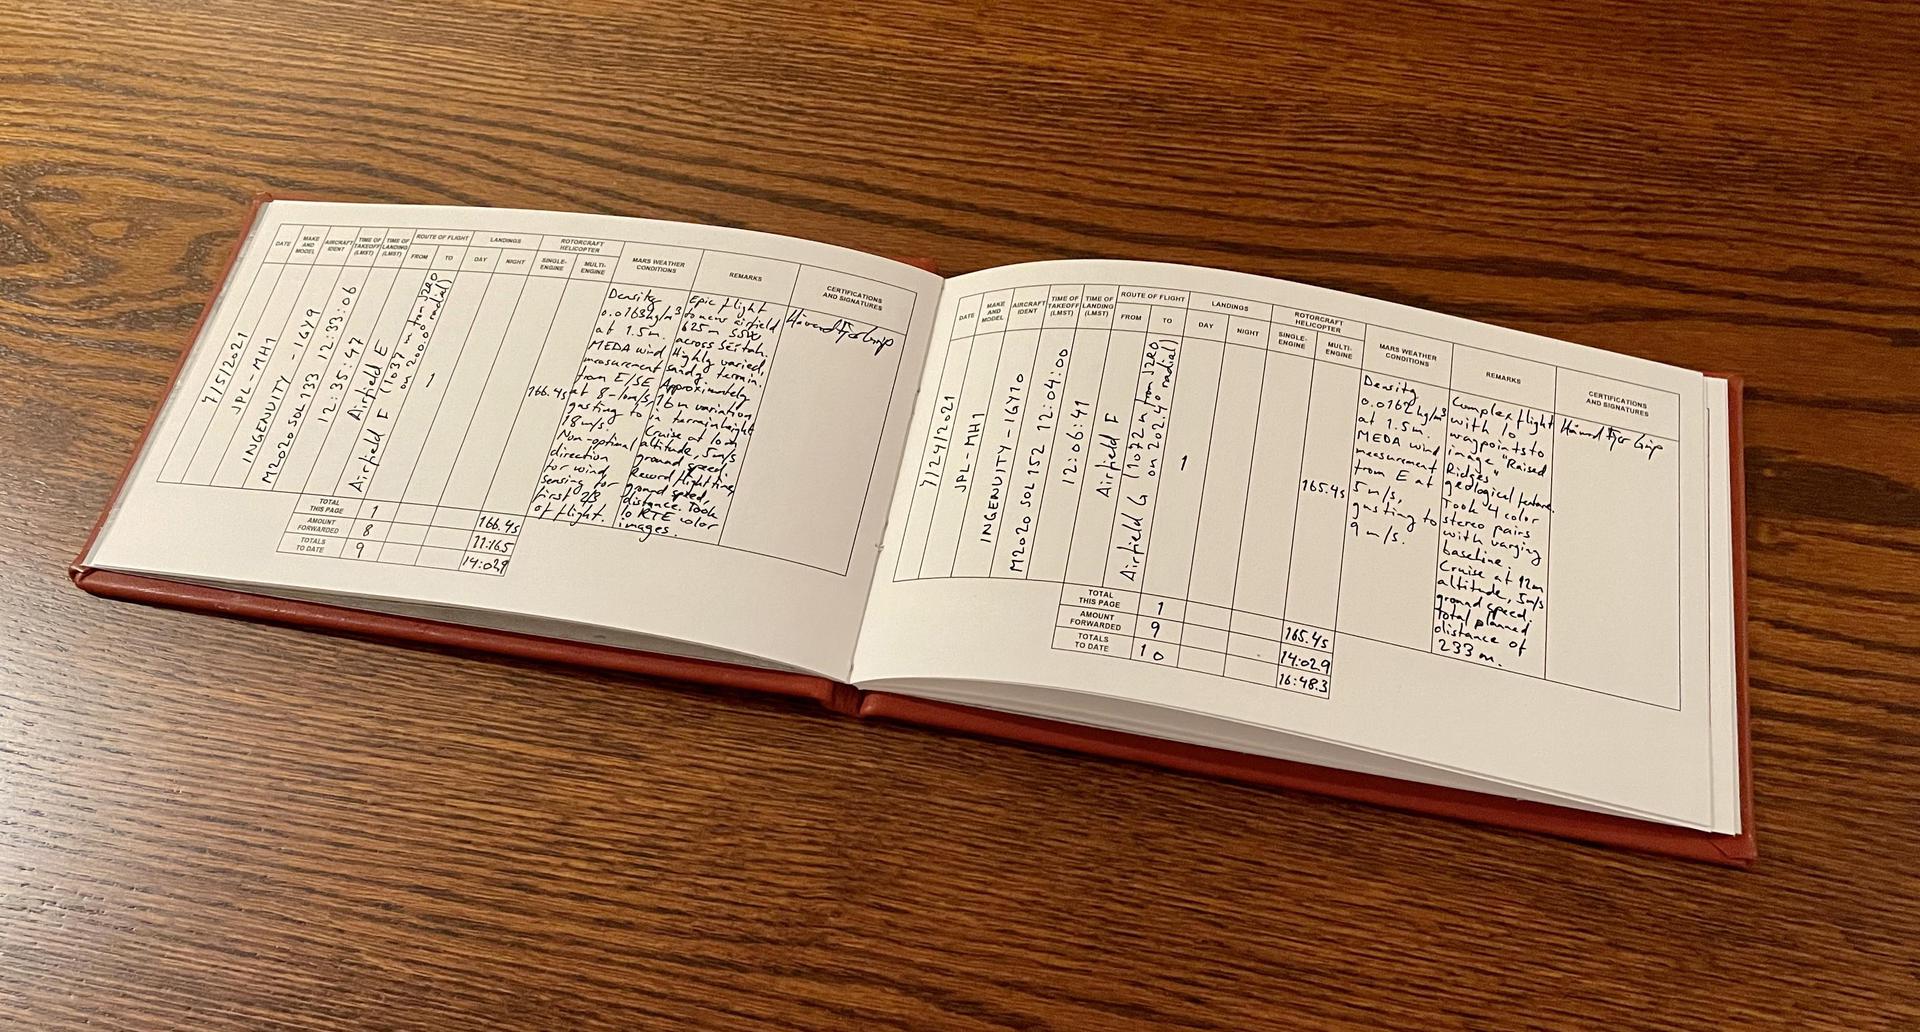 DATE
MAKE
AND
MODEL
AIRCRAFT
IDENT
TIME OF
TAKEOFF
(LMST)
TIME OF
LANDING
(LMST)
ROUTE OF FLIGHT
FROM
TO
LANDINGS
DAY
NIGHT
ROTORCRAFT
HELICOPTER
SINGLE-
ENGINE
MULTI-
ENGINE
MARS WEATHER
CONDITIONS
REMARKS
CERTIFICATIONS
AND SIGNATURES
7/5/2021
JPL-MH1
INGENUITY - IGY9
M2020 SOL 133 12:33:06
12:35:47
Airfield E
Airfield F (1037 m from JZRO
on 200.0° radial)
1
166.4s
Density
0.0163kg/m³
at 1.5m.
MEDA wind
measurement
from E/SE
at 8-10m/s,
gusting to
18m/s.
Non-optimal
direction
for wind
sensing for
first 2/3
of flight.
Epic flight
to new airfield
625m SSW
across Séítah.
Highly varied,
sandy terrain.
Approximately
16m variation
in terrain height
Cruise at 10m
altitude, 5m/s
ground speed.
Record flight time,
ground speed,
distance. Took
10 RTE color
images.
Håvard Fjær Grip
TOTAL
THIS PAGE
1
166.4s
AMOUNT
FORWARDED
8
11:16.5
TOTALS
TO DATE
9
14:02.9
DATE
MAKE
AND
MODEL
AIRCRAFT
IDENT
TIME OF
TAKEOFF
(LMST)
TIME OF
LANDING
(LMST)
ROUTE OF FLIGHT
FROM
TO
LANDINGS
DAY
NIGHT
ROTORCRAFT
HELICOPTER
SINGLE-
ENGINE
MULTI-
ENGINE
MARS WEATHER
CONDITIONS
REMARKS
CERTIFICATIONS
AND SIGNATURES
7/24/2021
JPL-MH1
INGENUITY - IGY10
M2020 SOL 152 12:04:00
12:06:41
Airfield F
Airfield G (1072 m from JZRO
on 202.4° radial)
1
165.4s
Density
0.0162kg/m³
at 1.5m.
MEDA wind
measurement
from E at
5m/s,
gusting to
9m/s.
Complex flight
with 10
waypoints to
image "Raised
Ridges"
geological feature.
Took 4 color
stereo pairs
with varying
baseline.
Cruise at 12m
altitude, 5m/s
ground speed,
total planned
distance of
233m.
Håvard Fjær Grip
TOTAL
THIS PAGE
1
165.4s
AMOUNT
FORWARDED
9
14:02.9
TOTALS
TO DATE
10
16:48.3